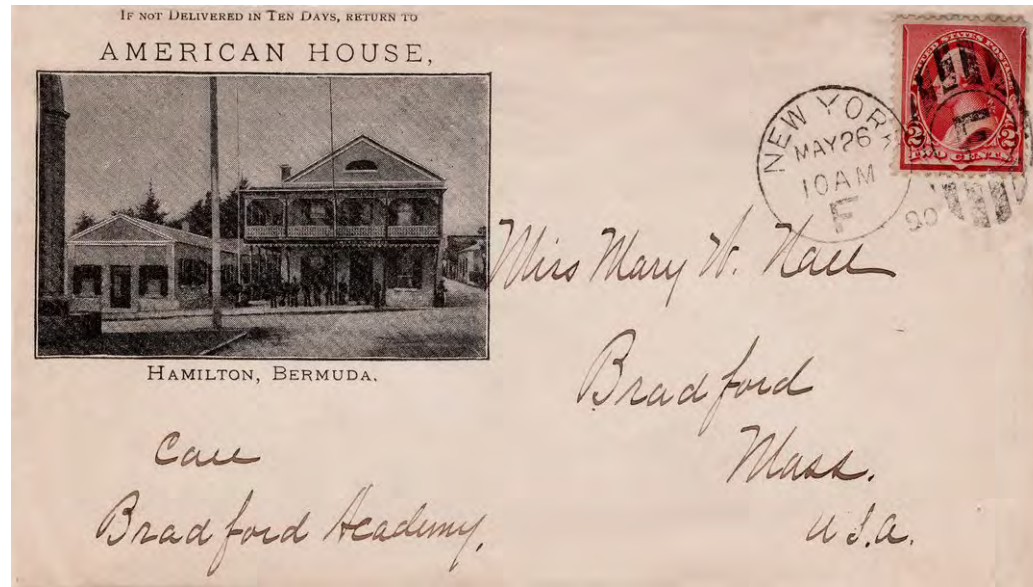 IF NOT DELIVERED IN TEN DAYS, RETURN TO
AMERICAN HOUSE,
HAMILTON, BERMUDA.
NEW YORK
MAY 26
10 AM
F
90
UNITED STATES POSTAGE
2 2
TWO CENTS
Miss Mary W. Hall
Bradford
Mass.
U.S.A.
Care
Bradford Academy.